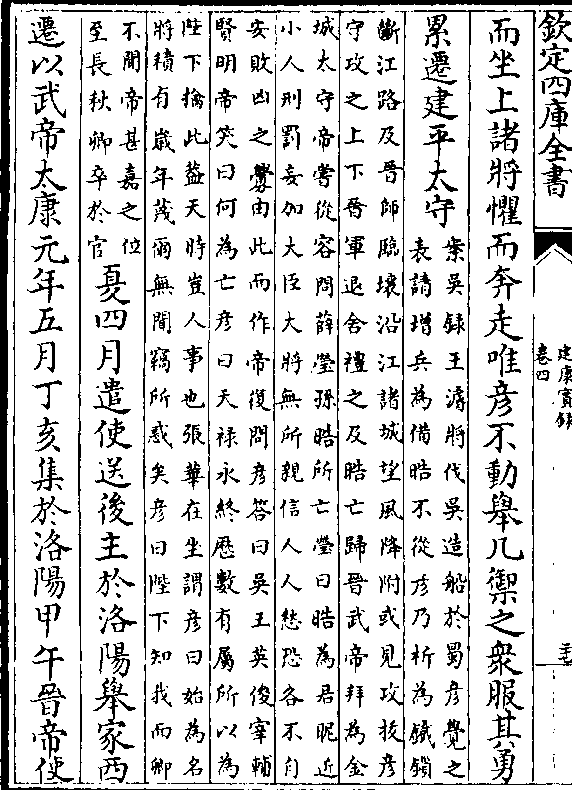 欽定四庫全書
建康實録
卷四
而坐上諸將懼而奔走唯彦不動舉几禦之衆服其勇
累遷建平太守
案吳録王濬將伐吳造船於蜀彦覺之
表請增兵為備皓不從彦乃析為鐵鎖
斷江路及晉師臨壤沿江諸城望風降附或見攻拔彦
守攻之上下晉軍退舍禮之及皓亡歸晉武帝拜為金
城太守帝嘗從容問薛瑩孫皓所亡瑩曰皓為君昵近
小人刑罰妄加大臣大將無所親信人人愁恐各不自
安敗凶之舋由此而作帝復問彦答曰吳王英俊宰輔
賢明帝笑曰何為亡彦曰天禄永終厯數有屬所以為
陛下擒此葢天時豈人事也張華在坐謂彦曰始為名
將積有嵗年蔑爾無聞竊所惑矣彦曰陛下知我而卿
不聞帝甚嘉之位
至長秋卿卒於官
夏四月遣使送後主於洛陽舉家西
遷以武帝太康元年五月丁亥集於洛陽甲午晉帝使